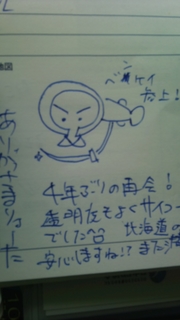 ベンケイ
参上！
ありがとうございました
4年ぶりの再会！
透明度もよくサイコー
でした^^ 北海道の
安心しますね!? また